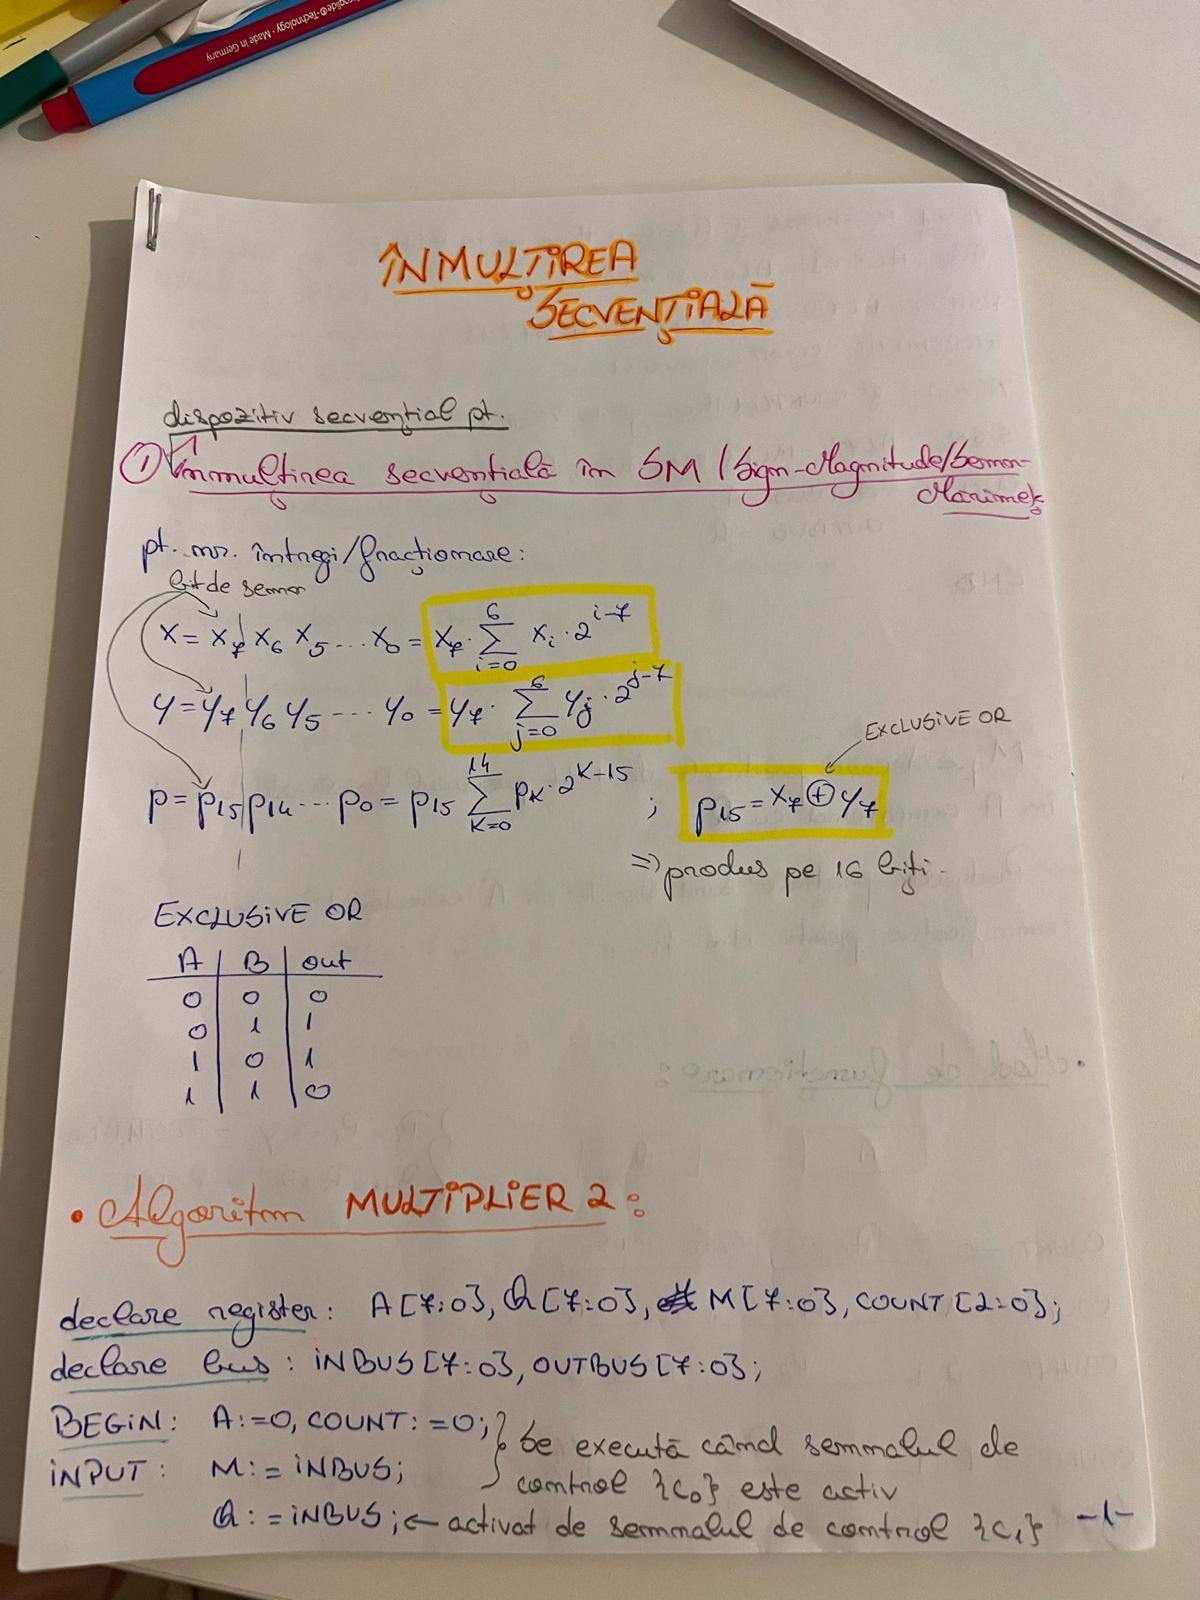 Made in Germany
ÎNMULȚIREA
SECVENȚIALĂ
dispozitiv secvențial pt.
① Înmulțirea secvențială în SM (Sign-Magnitude/Semn-
Mărime):
pt. nr. întregi/fracționare:
bit de semn
X = X₇ X₆ X₅ ... X₀ = X₇ · Σ_{i=0}^{6} Xᵢ · 2^{i-7}
Y = Y₇ Y₆ Y₅ --- Y₀ = Y₇ · Σ_{j=0}^{6} Yⱼ · 2^{j-7}
EXCLUSIVE OR
P = P₁₅ P₁₄ ... P₀ = P₁₅ Σ_{K=0}^{14} P_K · 2^{K-15} ; P₁₅ = X₇ ⊕ Y₇
=> produs pe 16 biți.
EXCLUSIVE OR
A | B | out
0 | 0 | 0
0 | 1 | 1
1 | 0 | 1
1 | 1 | 0
• Algoritm MULTIPLIER 2:
declare register: A[7:0], Q[7:0], M[7:0], COUNT[2:0];
declare bus: INBUS[7:0], OUTBUS[7:0];
BEGIN: A:=0, COUNT:=0; } se execută când semnalul de
INPUT: M:= INBUS; control {c₀} este activ
Q:= INBUS; ← activat de semnalul de control {c₁} -1-